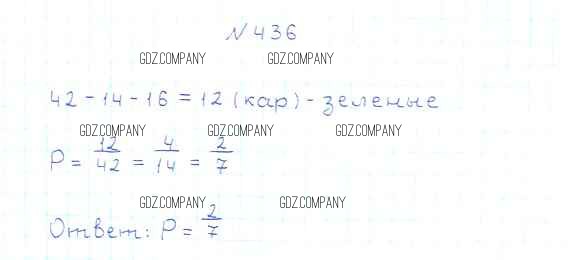 № 436
GDZ.COMPANY GDZ.COMPANY
42 - 14 - 16 = 12 (кар) - зеленые
GDZ.COMPANY GDZ.COMPANY GDZ.COMPANY
P = 12/42 = 4/14 = 2/7
GDZ.COMPANY GDZ.COMPANY
Ответ: P = 2/7